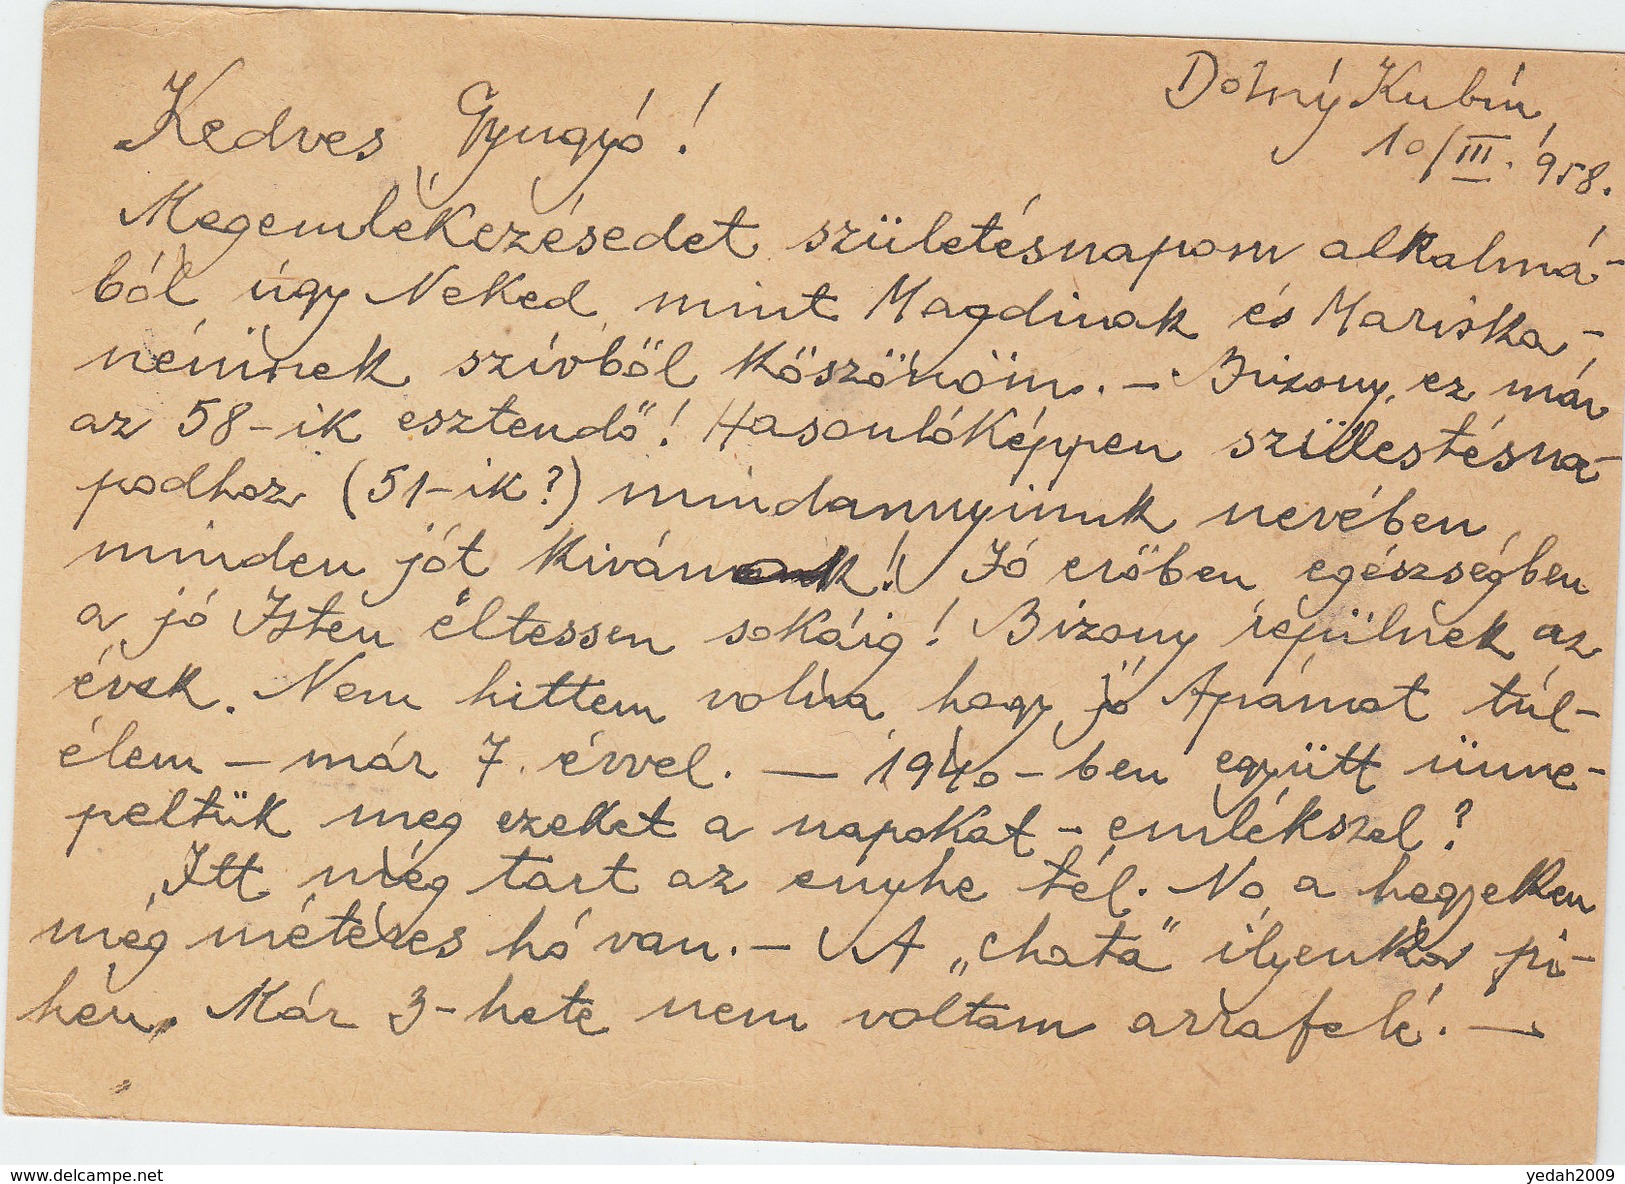 Dolný Kubín,
10/III. 958.
Kedves Gyugyó!
Megemlékezésedet születésnapom alkalmá-
ból úgy Neked mint Magdinak és Mariska-
néninek szívből köszönöm. – Bizony, ez már
az 58-ik esztendő! Hasonlóképpen születésna-
podhoz (51-ik?) mindannyiunk nevében
minden jót kívánok! Jó erőben egészségben
a jó Isten éltessen sokáig! Bizony repülnek az
évek. Nem hittem volna hogy jó Apámat túl-
élem – már 7 évvel. — 1940-ben együtt ünne-
peltük meg ezeket a napokat – emlékszel?
Itt még tart az enyhe tél. No a hegyeken
még méteres hó van. – A „chata" ilyenkor pi-
hen. Már 3-hete nem voltam arrafelé. —
delcampe.net
yedah2009